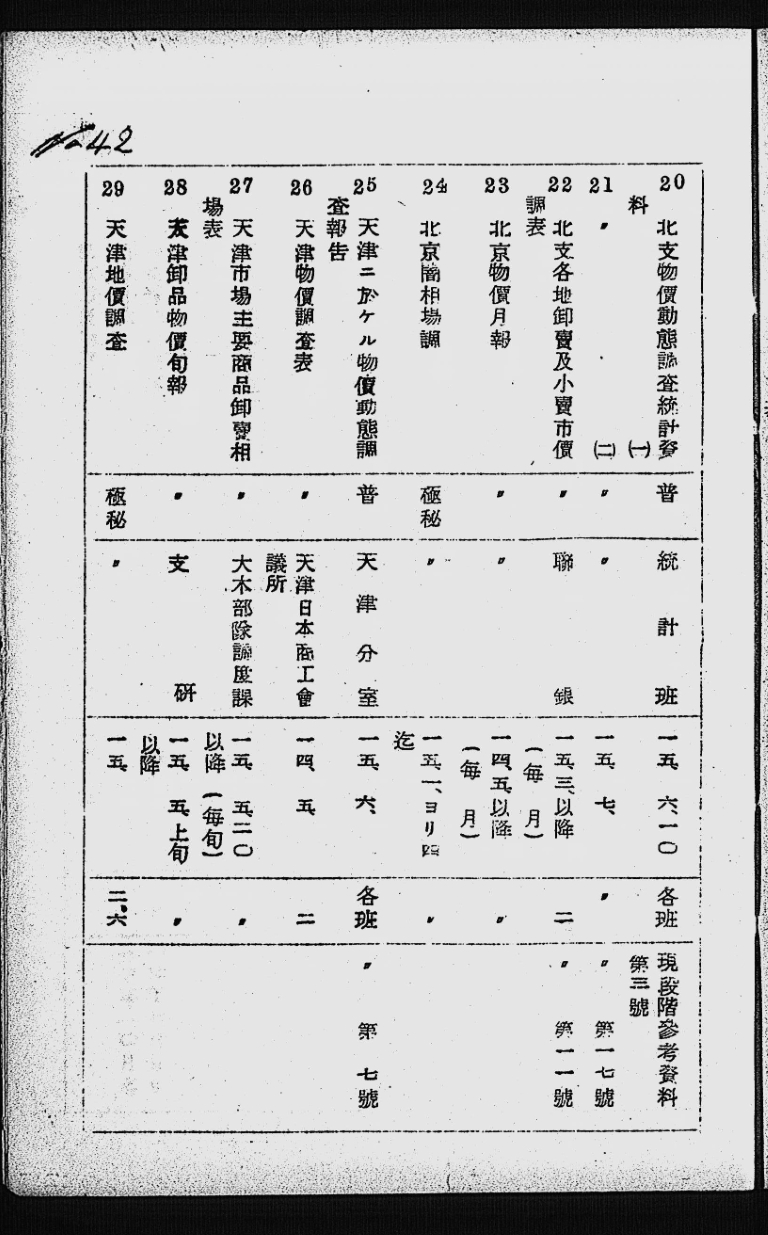 No 42
20 北支物價動態調査統計資
料 ㈠
普
統計班
一五、六、一〇
各班
現段階參考資料
第三號
21 〃 ㈡
〃
〃
一五、七、
〃
〃 第一七號
22 北支各地卸賣及小賣市價
調表
〃
聯銀
一五、三、以降
(每月)
二
〃 第一一號
23 北京物價月報
〃
〃
一四、五、以降
(每月)
〃
24 北京闇相場調
極秘
〃
一五、一、ヨリ四
迄
〃
25 天津ニ於ケル物價動態調
査報告
普
天津分室
一五、六、
各班
〃 第七號
26 天津物價調査表
〃
天津日本商工會
議所
一四、五、
二
27 天津市場主要商品卸賣相
場表
〃
大木部隊調度課
一五、五、二〇
以降(每旬)
〃
28 天津卸品物價旬報
〃
支研
一五、五、上旬
以降
〃
29 天津地價調査
極秘
〃
一五、
二、六